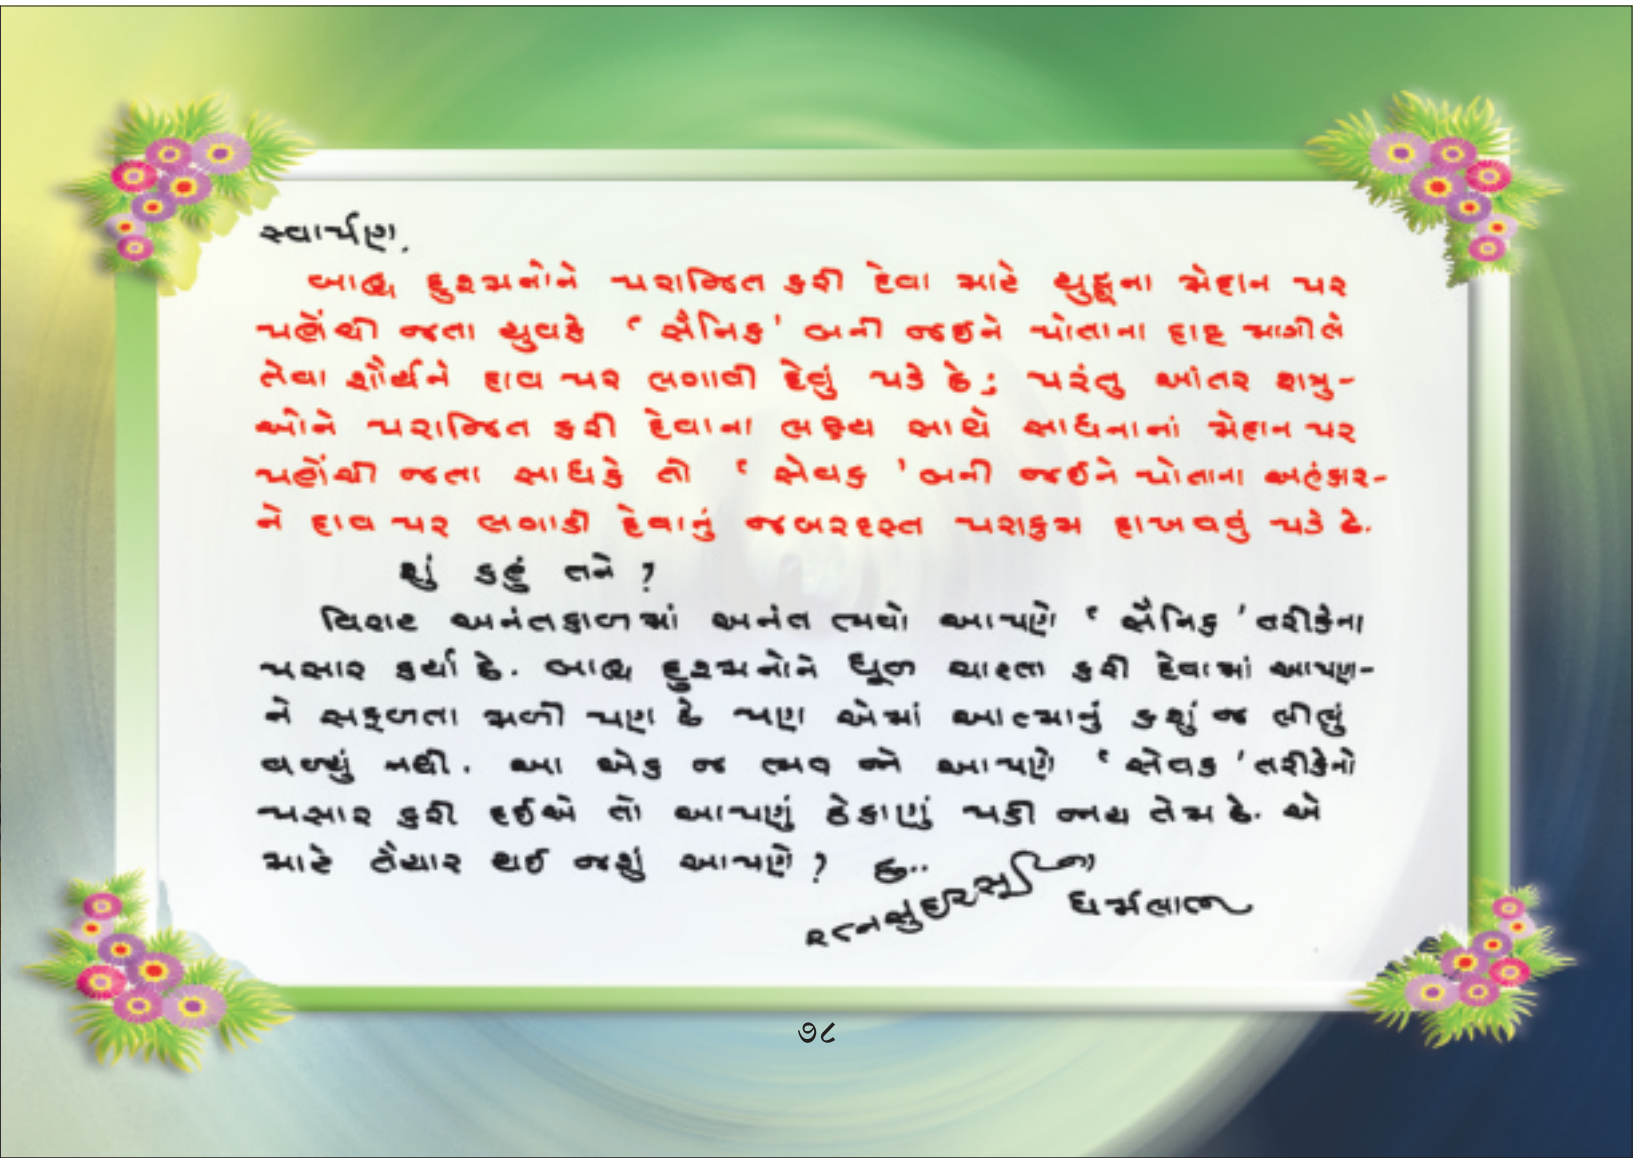 સ્વાર્પણ.
બાહ્ય દુશ્મનોને પરાજિત કરી દેવા માટે યુદ્ધના મેદાન પર
પહોંચી જતા યુવકે ‘સૈનિક’ બની જઈને પોતાના દાદ માગી લે
તેવા શૌર્યને દાવ પર લગાવી દેવું પડે છે; પરંતુ આંતર શત્રુ-
ઓને પરાજિત કરી દેવાના લક્ષ્ય સાથે સાધનાનાં મેદાન પર
પહોંચી જતા સાધકે તો ‘સેવક’ બની જઈને પોતાના અહંકાર-
ને દાવ પર લગાડી દેવાનું જબરદસ્ત પરાક્રમ દાખવવું પડે છે.
શું કહું તને?
વિરાટ અનંતકાળમાં અનંત ભવો આપણે ‘સૈનિક’ તરીકેના
પસાર કર્યા છે. બાહ્ય દુશ્મનોને ધૂળ ચાટતા કરી દેવામાં આપણ-
ને સફળતા મળી પણ છે પણ એમાં આત્માનું કશું જ લીલું
વળ્યું નથી. આ એક જ ભવ જો આપણે ‘સેવક’ તરીકેનો
પસાર કરી દઈએ તો આપણું ઠેકાણું પડી જાય તેમ છે. એ
માટે તૈયાર થઈ જશું આપણે?
રત્નસુંદરસૂરિના
ધર્મલાભ
૭૮